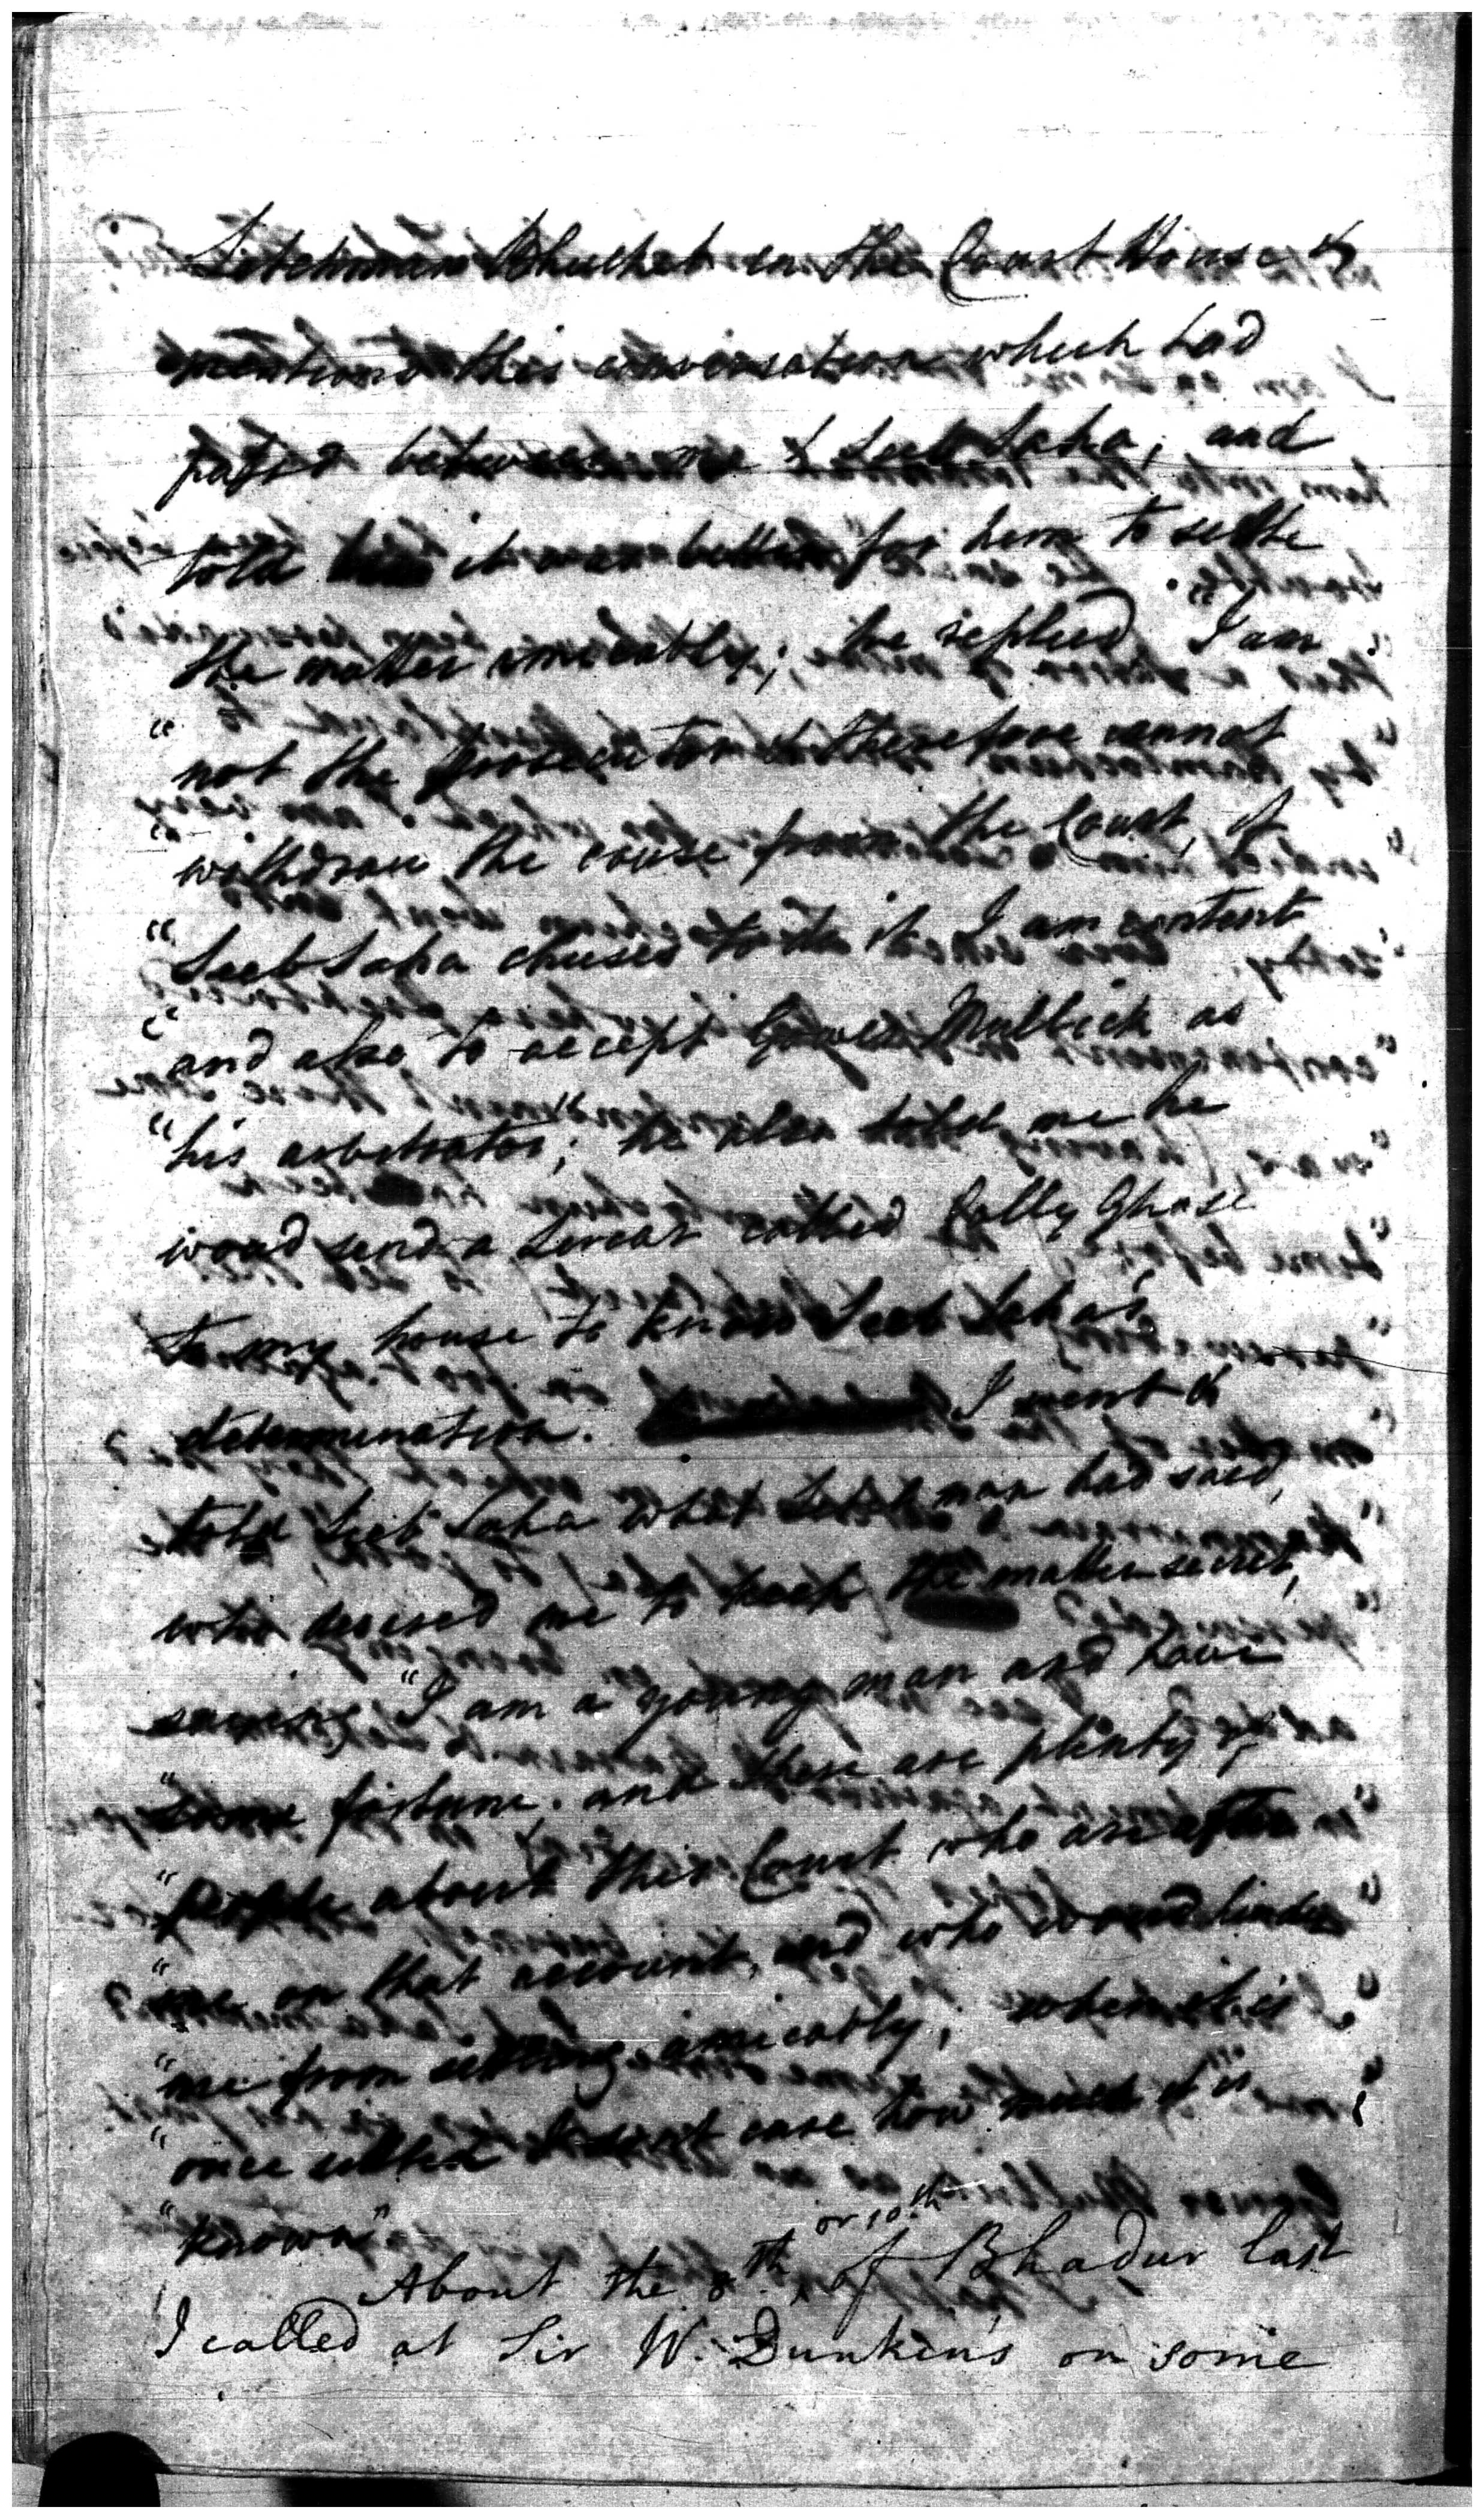 Litchman Bhuckat in the Court House &
mentiond this conversation which had
passed between me & Seeb Saha; and
told him it was better for him to settle
the matter amicably; he replied "I am
"not the prosecutor & therefore cannot
"withdraw the cause from the Court, if
"Seeb Saha chuses to do it I am content
"and also to accept Gower Mullick as
"his arbitrator"; he also told me he
woud send a Sircar called Colly Ghose
to my house to know Seeb Saha's
determination. I went &
told Seeb Saha what Litchman had said,
who desired me to keep the matter secret,
saying "I am a young man and have
"some fortune, and there are plenty of
"people about this Court who are after
"me on that account, and who woud hinder
"me from settling amicably; when it is
"once settled I don't care how much it is
"known"
About the 8th or 10th of Bhadur last
I called at Sir W. Dunkin's on some